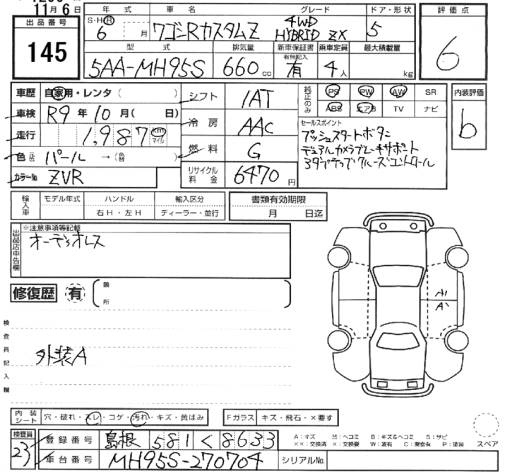 11月6日
出品番号
145
年式 車名 グレード ドア・形状
S・H・R 6 月 ワゴンRカスタムZ 4WD HYBRID ZX 5
型式 排気量 新車保証書 乗車定員 最大積載量
有無記入
5AA-MH95S 660 cc 有 4人 kg
評価点
6
内装評価
b
車歴 自家用・レンタ( )
車検 R9年10月( 日)
走行 1,987 km マイル
色 パール →( )
カラーNo ZVR
シフト IAT
冷房 AAC
燃料 G
リサイクル料金 6470円
純正のみ PS PW AW SR
ABS エアB TV ナビ
セールスポイント
プッシュスタートボタン
デュアルカメラブレーキサポート
アダプティブクルーズコントロール
輸入車 モデル年式 ハンドル 輸入区分
年 右H・左H ディーラー・並行
書類有効期限
月 日迄
出品店申告欄
※注意事項等記載
オーディオレス
修復歴 有 箇所
検査員記入欄
外装A
A1
A
内装シート 穴・破れ・スレ・コゲ・汚れ・キズ・黄ばみ
Fガラス キズ・飛石・×要す
検査員
23
登録番号 島根 581 く 8633
車台番号 MH95S-270704
シリアルNo.
A:キズ M:ヘコミ B:キズ&ヘコミ S:サビ
××:交換済 ×:要交換 W:波有 C:腐食有 P:塗装
スペア